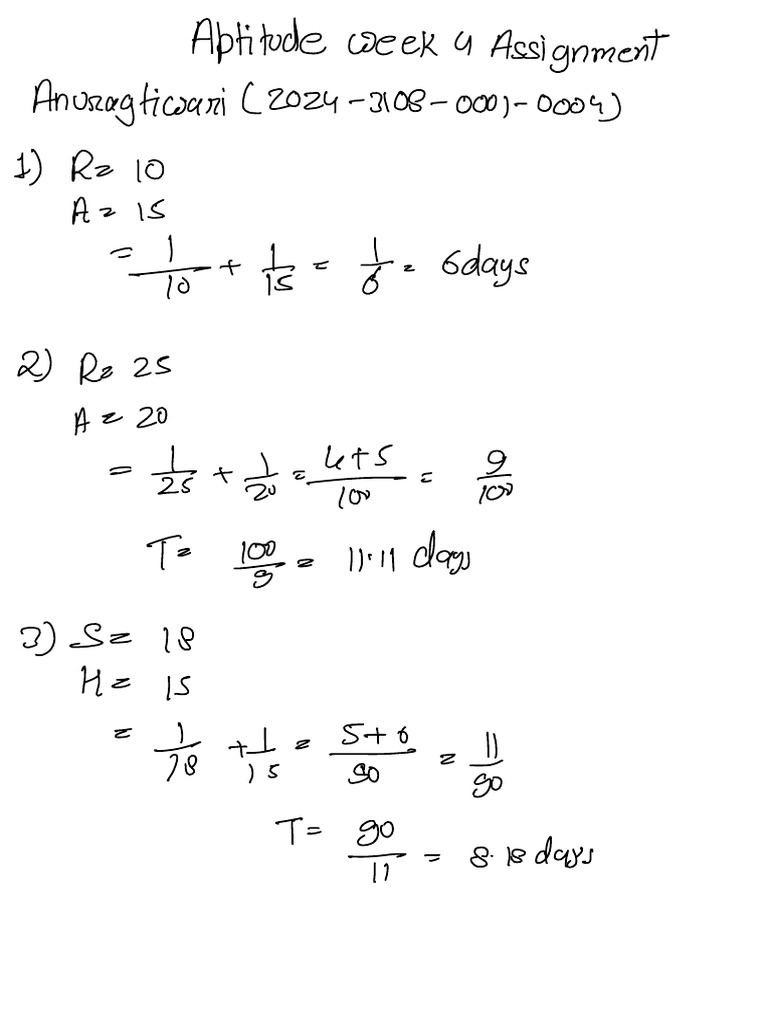 Aptitude week 4 Assignment
Anurag tiwari (2024-3108-0001-0004)
1) R= 10
A= 15
= 1/10 + 1/15 = 1/6 = 6 days
2) R= 25
A= 20
= 1/25 + 1/20 = 4+5/100 = 9/100
T= 100/9 = 11.11 days
3) S= 18
H= 15
= 1/18 + 1/15 = 5+6/90 = 11/90
T= 90/11 = 8.18 days